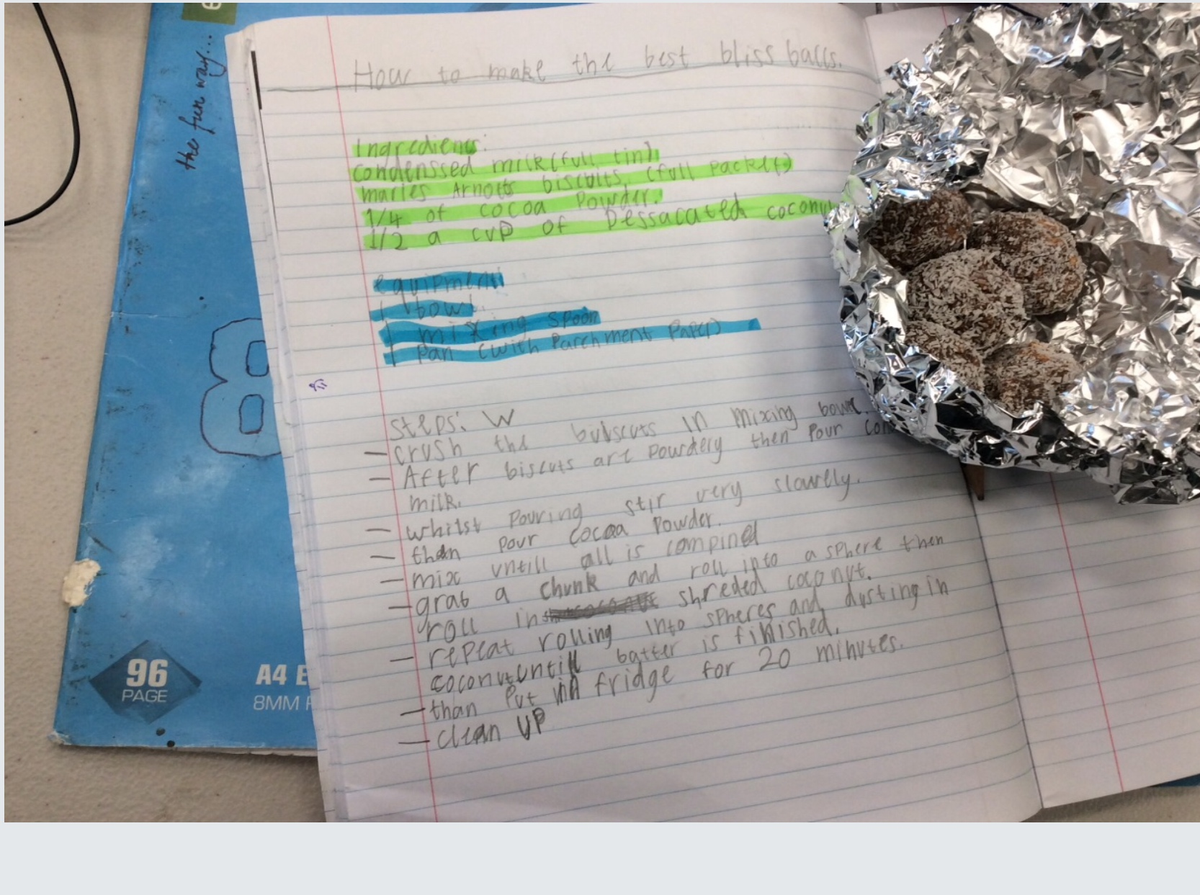 the fun way...
How to make the best bliss balls.
Ingredients:
condenssed milk (full tin)
maries Arnotts biscuits (full packet)
1/4 of cocoa Powder.
1/2 a cup of Dessacated coconu
equipment
1 bowl
1 mixing spoon
1 pan (with Parchment Paper)
8
steps: W
- crush the buiscuts in mixing bowl.
- After biscuts are powdery then pour con
milk.
- whilst pouring stir very slowely.
- than pour cocoa powder.
- mix untill all is compined
- grab a chunk and roll into a sphere then
roll in shreded coconut.
- repeat rolling into spheres and dusting in
coconut untill batter is finished.
- than put in fridge for 20 minutes.
- clean up
96
PAGE
A4 E
8MM